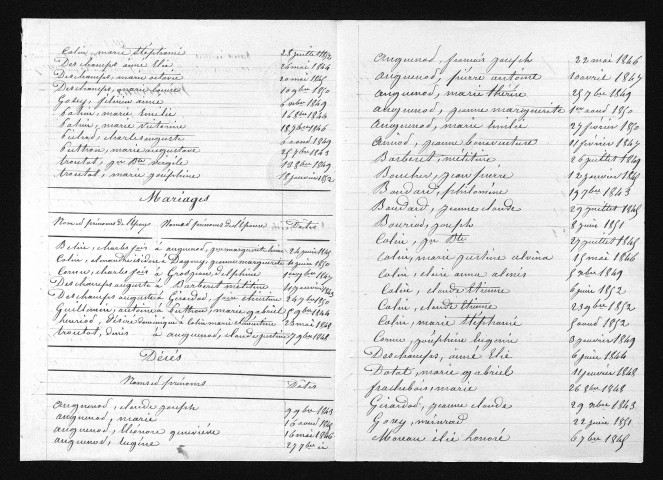 Colin, marie Stéphanie 28 juillet 1852
Deschamps aimé Elié 26 mai 1844
Deschamps, marie octavie 20 mai 1845
Deschamps, marie Louise 10 9bre 1850
Gosey, félicien anne 6 avril 1849
Pahin, marie Emélie 16 8bre 1844
Pahin, marie Victorine 18 7bre 1846
Pichard, charles auguste 6 août 1849
Puthron, marie augustave 25 9bre 1843
troutot, gre Bte Virgile 10 8bre 1849
troutot, marie joséphine 18 janvier 1852
Mariages
Nom et prénoms de l'Epoux Nom et prénoms de l'Epouse Dates
Bolin, charles fois à anguenod, gne marguerite 24 juin 1845
Colin, almand théodule à Dagney, jeanne marguerite 10 juin 1850
Cornu, charles fois à Grosjean, delphine 1er 7bre 1847
Deschamps auguste à Barberot méliture 10 janvier 1843
Deschamps auguste à Girardod, fse clémentine 24 7bre 1850
Guillemin, antoine à Puthron, marie gabriel 5 9bre 1844
henriod, désiré dominique à Colin marie clémentine 23 mai 1848
troutot, denis à anguenod, claude justine 7 9bre 1848
Décès
Noms et prénoms Dates
anguenod, claude joseph 9 9bre 1843
anguenod, marie 16 août 1845
anguenod, Eléonore geneviève 16 mai 1846
anguenod, eugène 27 7bre id
anguenod, françois joseph 22 mai 1846
anguenod, pierre antoine 10 avril 1847
anguenod, marie thérèse 25 7bre 1849
anguenod, jeanne marguerite 1er août 1850
anguenod, marie Emilie 27 février 1850
arnod, jeanne bonaventure 11 février 1847
Barberet, méliture 26 juillet 1849
Boucher, jean pierre 12 janvier 1845
Boudard, philomène 19 7bre 1843
Boudard, jeanne claude 29 juillet 1845
Bourriod, joseph 8 juin 1851
Colin, gre Bte 27 juillet 1845
Colin, marie justine alvina 15 mai 1846
Colin, claire anna almis 5 8bre 1849
Colin, claude Etienne 6 juin 1852
Colin, claude Etienne 23 9bre 1852
Colin, marie Stéphanie 5 août 1852
Cornu, joséphine eugénie 3 janvier 1849
Deschamps, aimé Elié 6 juin 1844
Dotat, marie gabriel 11 janvier 1848
frachebois, marie 26 8bre 1848
Girardod, jeanne claude 29 9bre 1843
Gosey, meinrad 22 juin 1851
Moreau élie honoré 6 7bre 1845